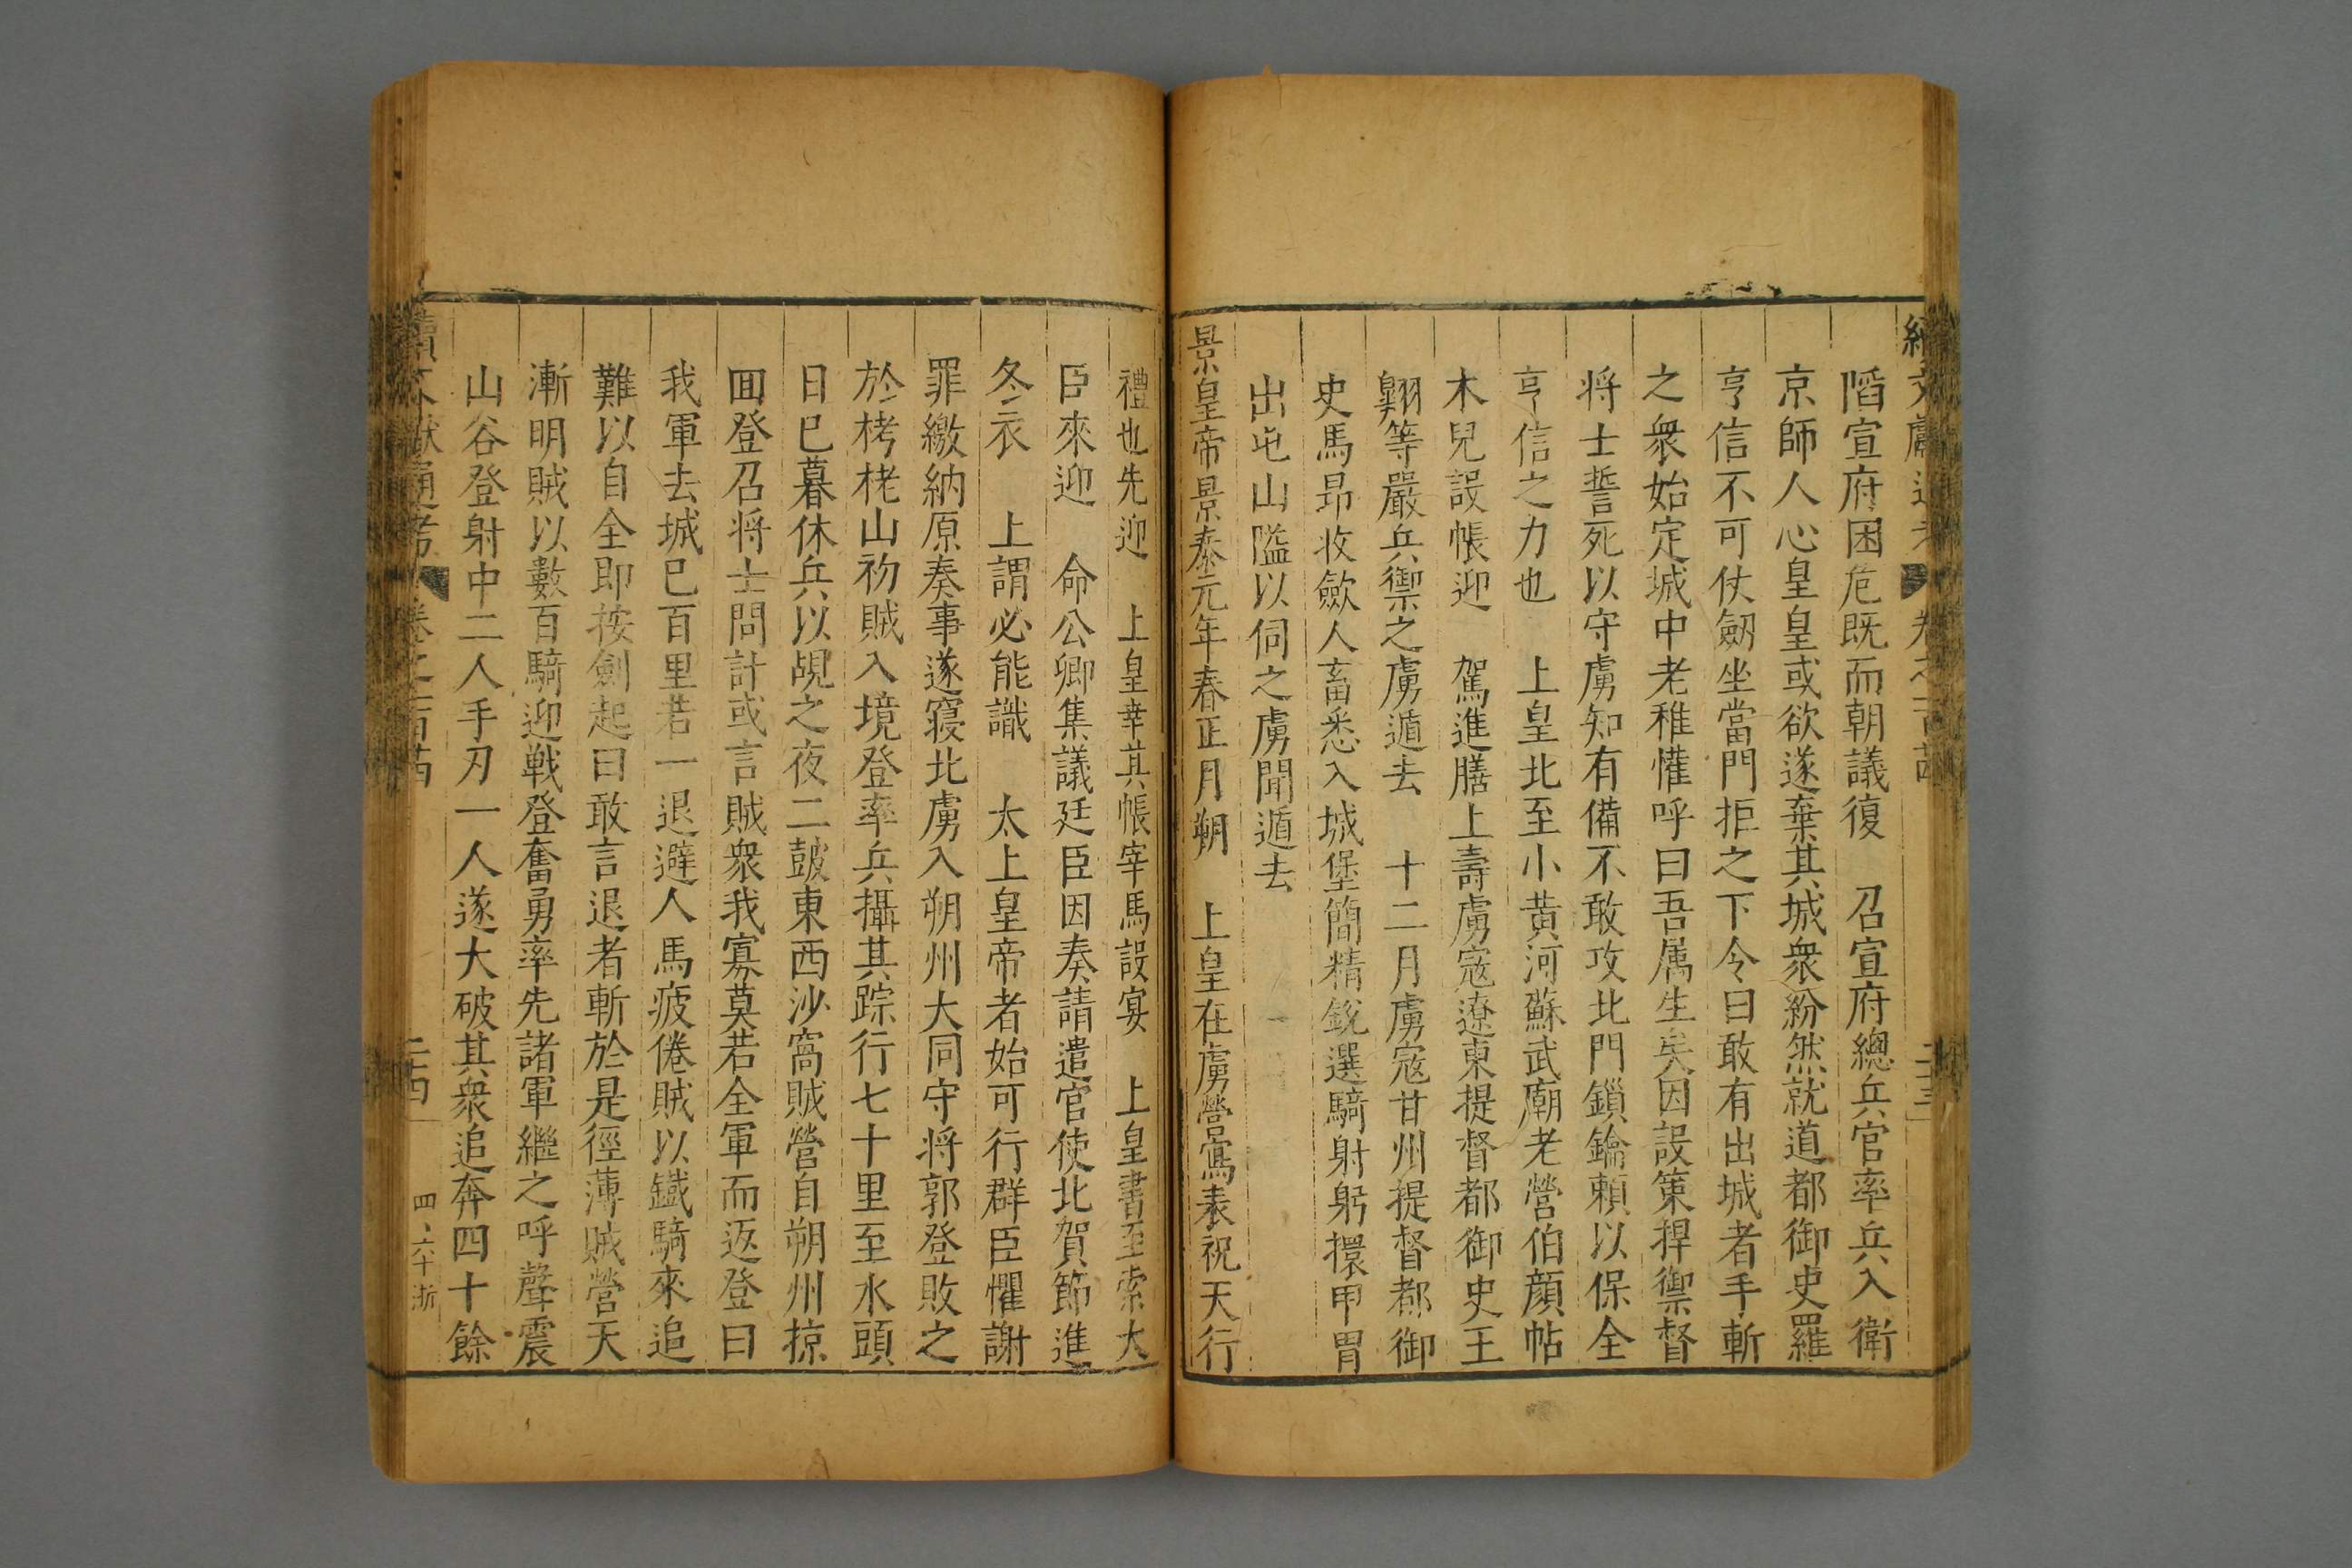 陷宣府困危既而朝議復　召宣府總兵官率兵入衛
京師人心皇皇或欲遂棄其城衆紛然就道都御史羅
亨信不可仗劒坐當門拒之下令曰敢有出城者手斬
之衆始定城中老稚懽呼曰吾属生矣因設策捍禦督
将士誓死以守虜知有備不敢攻北門鎖鑰頼以保全
亨信之力也　上皇北至小黄河蘇武廟老營伯顔帖
木兒設帳迎　駕進膳上壽虜寇遼東提督都御史王
翺等嚴兵禦之虜遁去　十二月虜寇甘州提督都御
史馬昂收歛人畜悉入城堡簡精鋭選騎射躬擐甲胃
出屯山隘以伺之虜聞遁去
景皇帝景泰元年春正月朔　上皇在虜營寫表祝天行
禮也先迎　上皇幸其帳宰馬設宴　上皇書至索大
臣來迎　命公卿集議廷臣因奏請遣官使北賀節進
冬衣　上謂必能識　太上皇帝者始可行群臣懼謝
罪繳納原奏事遂寢北虜入朔州大同守将郭登敗之
於栲栳山初賊入境登率兵攝其踪行七十里至水頭
日已暮休兵以覘之夜二鼓東西沙窩賊營自朔州掠
囬登召将士問計或言賊衆我寡莫若全軍而返登曰
我軍去城已百里若一退避人馬疲倦賊以鐡騎來追
難以自全即按劍起曰敢言退者斬於是徑薄賊營天
漸明賊以數百騎迎戰登奮勇率先諸軍繼之呼聲震
山谷登射中二人手刃一人遂大破其衆追奔四十餘
二十四　四六十浙